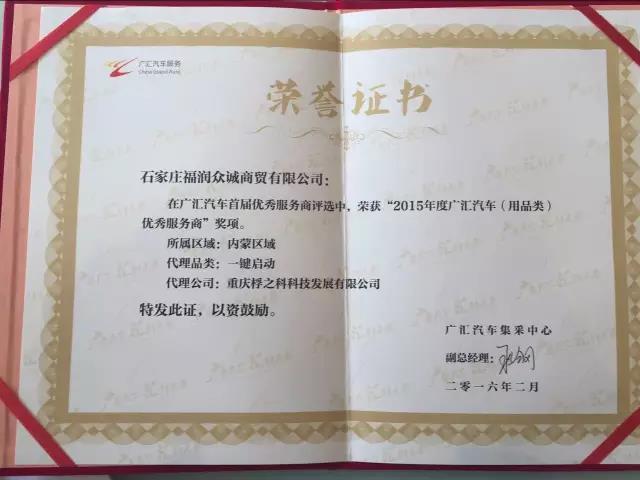 广汇汽车服务
China Grand Auto
荣誉证书
石家庄福润众诚商贸有限公司：
在广汇汽车首届优秀服务商评选中，荣获“2015年度广汇汽车（用品类）
优秀服务商”奖项。
所属区域：内蒙区域
代理品类：一键启动
代理公司：重庆桴之科科技发展有限公司
特发此证，以资鼓励。
广汇汽车集采中心
副总经理：
二零一六年二月